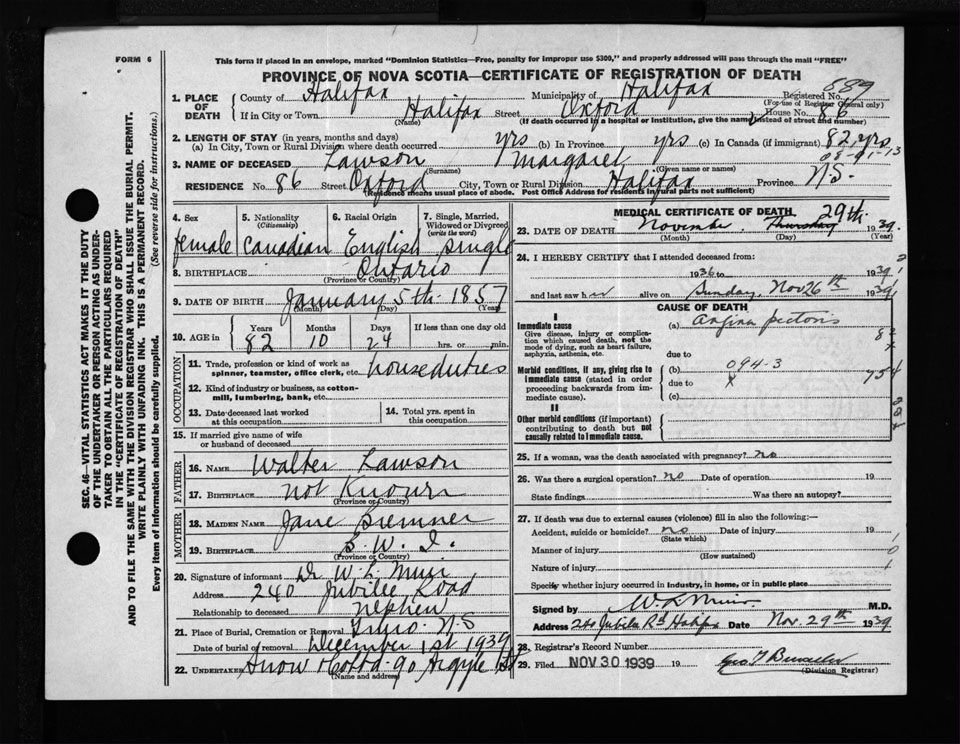 FORM 6
This form if placed in an envelope, marked "Dominion Statistics—Free, penalty for improper use $300," and properly addressed will pass through the mail "FREE"
PROVINCE OF NOVA SCOTIA—CERTIFICATE OF REGISTRATION OF DEATH
SEC. 46—VITAL STATISTICS ACT MAKES IT THE DUTY
OF THE UNDERTAKER OR PERSON ACTING AS UNDER-
TAKER TO OBTAIN ALL THE PARTICULARS REQUIRED
IN THE "CERTIFICATE OF REGISTRATION OF DEATH"
AND TO FILE THE SAME WITH THE DIVISION REGISTRAR WHO SHALL ISSUE THE BURIAL PERMIT.
WRITE PLAINLY WITH UNFADING INK. THIS IS A PERMANENT RECORD.
Every item of Information should be carefully supplied. (See reverse side for instructions.)
1. PLACE OF DEATH County of Halifax Municipality of Halifax Registered No. 889
(For use of Registrar General only)
If in City or Town Halifax Oxford House No. 86
(Name) (If death occurred in a hospital or institution, give the name instead of street and number)
2. LENGTH OF STAY (in years, months and days)
(a) In City, Town or Rural Division where death occurred yrs (b) In Province yrs (c) In Canada (if immigrant) 82 yrs
3. NAME OF DECEASED Lawson Margaret
(Surname) (Given name or names)
RESIDENCE No. 86 Street Oxford City, Town or Rural Division Halifax Province N.S.
(Residence means usual place of abode. Post Office Address for residents in rural parts not sufficient)
4. Sex 5. Nationality (Citizenship) 6. Racial Origin 7. Single, Married, Widowed or Divorced (write the word)
female Canadian English single
8. BIRTHPLACE Ontario
(Province or Country)
9. DATE OF BIRTH January 5th 1857
(Month) (Day) (Year)
10. AGE in Years Months Days If less than one day old
82 10 24 hrs. or min.
OCCUPATION
11. Trade, profession or kind of work as spinner, teamster, office clerk, etc. house duties
12. Kind of industry or business, as cotton-mill, lumbering, bank, etc.
13. Date deceased last worked at this occupation 14. Total yrs. spent in this occupation
15. If married give name of wife or husband of deceased
FATHER
16. NAME Walter Lawson
17. BIRTHPLACE not Known
(Province or Country)
MOTHER
18. MAIDEN NAME Jane
19. BIRTHPLACE
(Province or Country)
20. Signature of informant Dr W. L. Muir
Address 240 Jubilee Road
Relationship to deceased nephew
21. Place of Burial, Cremation or Removal Truro N.S
Date of burial or removal December 1st 1939
22. UNDERTAKER Snow & Co Ltd - 90 Argyle St
(Name and address)
MEDICAL CERTIFICATE OF DEATH
23. DATE OF DEATH November Thursday 29th 1939.
(Month) (Day) (Year)
24. I HEREBY CERTIFY that I attended deceased from:
1936 to 1939
and last saw her alive on Sunday, Nov 26th 1939
CAUSE OF DEATH
I
Immediate cause
Give disease, injury or complication which caused death, not the mode of dying, such as heart failure, asphyxia, asthenia, etc.
(a) Angina pectoris
due to
Morbid conditions, if any, giving rise to immediate cause (stated in order proceeding backwards from immediate cause).
(b) 094-3
due to
(c)
II
Other morbid conditions (if important) contributing to death but not causally related to immediate cause.
25. If a woman, was the death associated with pregnancy? no
26. Was there a surgical operation? no Date of operation 19
State findings Was there an autopsy?
27. If death was due to external causes (violence) fill in also the following:—
Accident, suicide or homicide? no Date of injury 19
(State which)
Manner of injury
(How sustained)
Nature of injury
Specify whether injury occurred in industry, in home, or in public place
Signed by W L Muir M.D.
Address 240 Jubilee Rd Halifax Date Nov. 29th 1939
28. Registrar's Record Number
29. Filed NOV 30 1939 19
(Division Registrar)